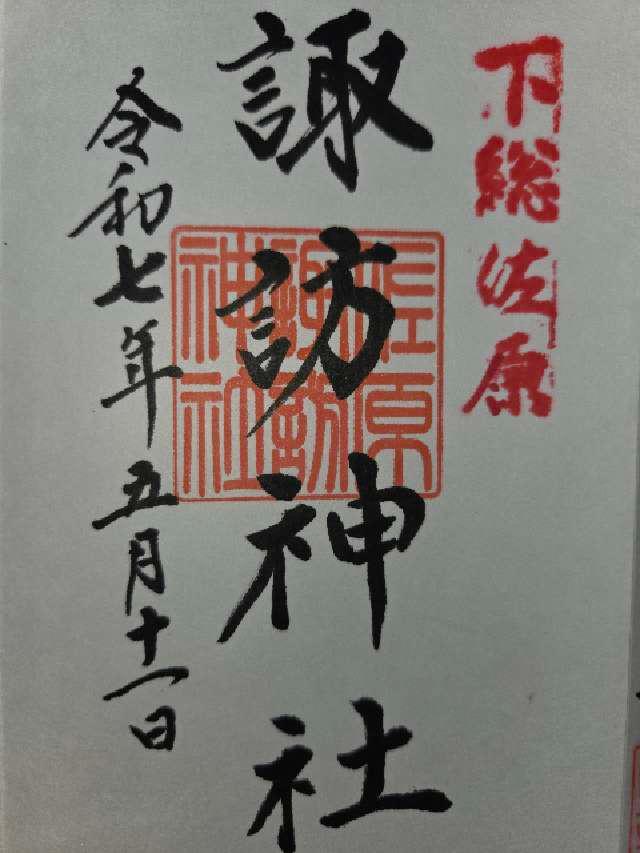 下総佐原
諏訪神社
佐原
諏訪
神社
令和七年五月十一日